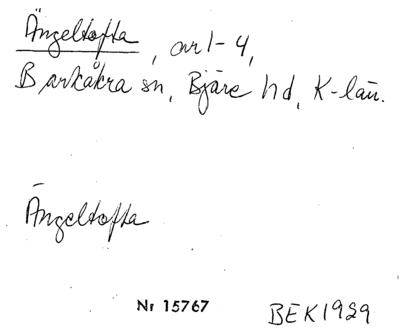 Ängeltofta, arl-4,
Barkåkra sn, Bjäre hd, K-län.
Ängeltofta
Nr 15767 BEK1929